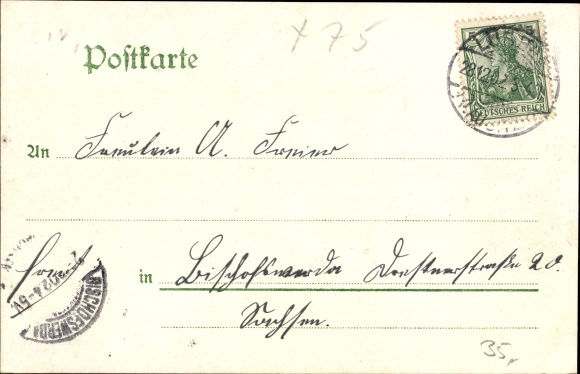 + 75
Postkarte
5 5
28.12.02
DEUTSCHES REICH
An Fräulein A. Freier
in Bischofswerda Dresdnerstraße 20.
Sachsen.
BISCHOFSWERDA
35,